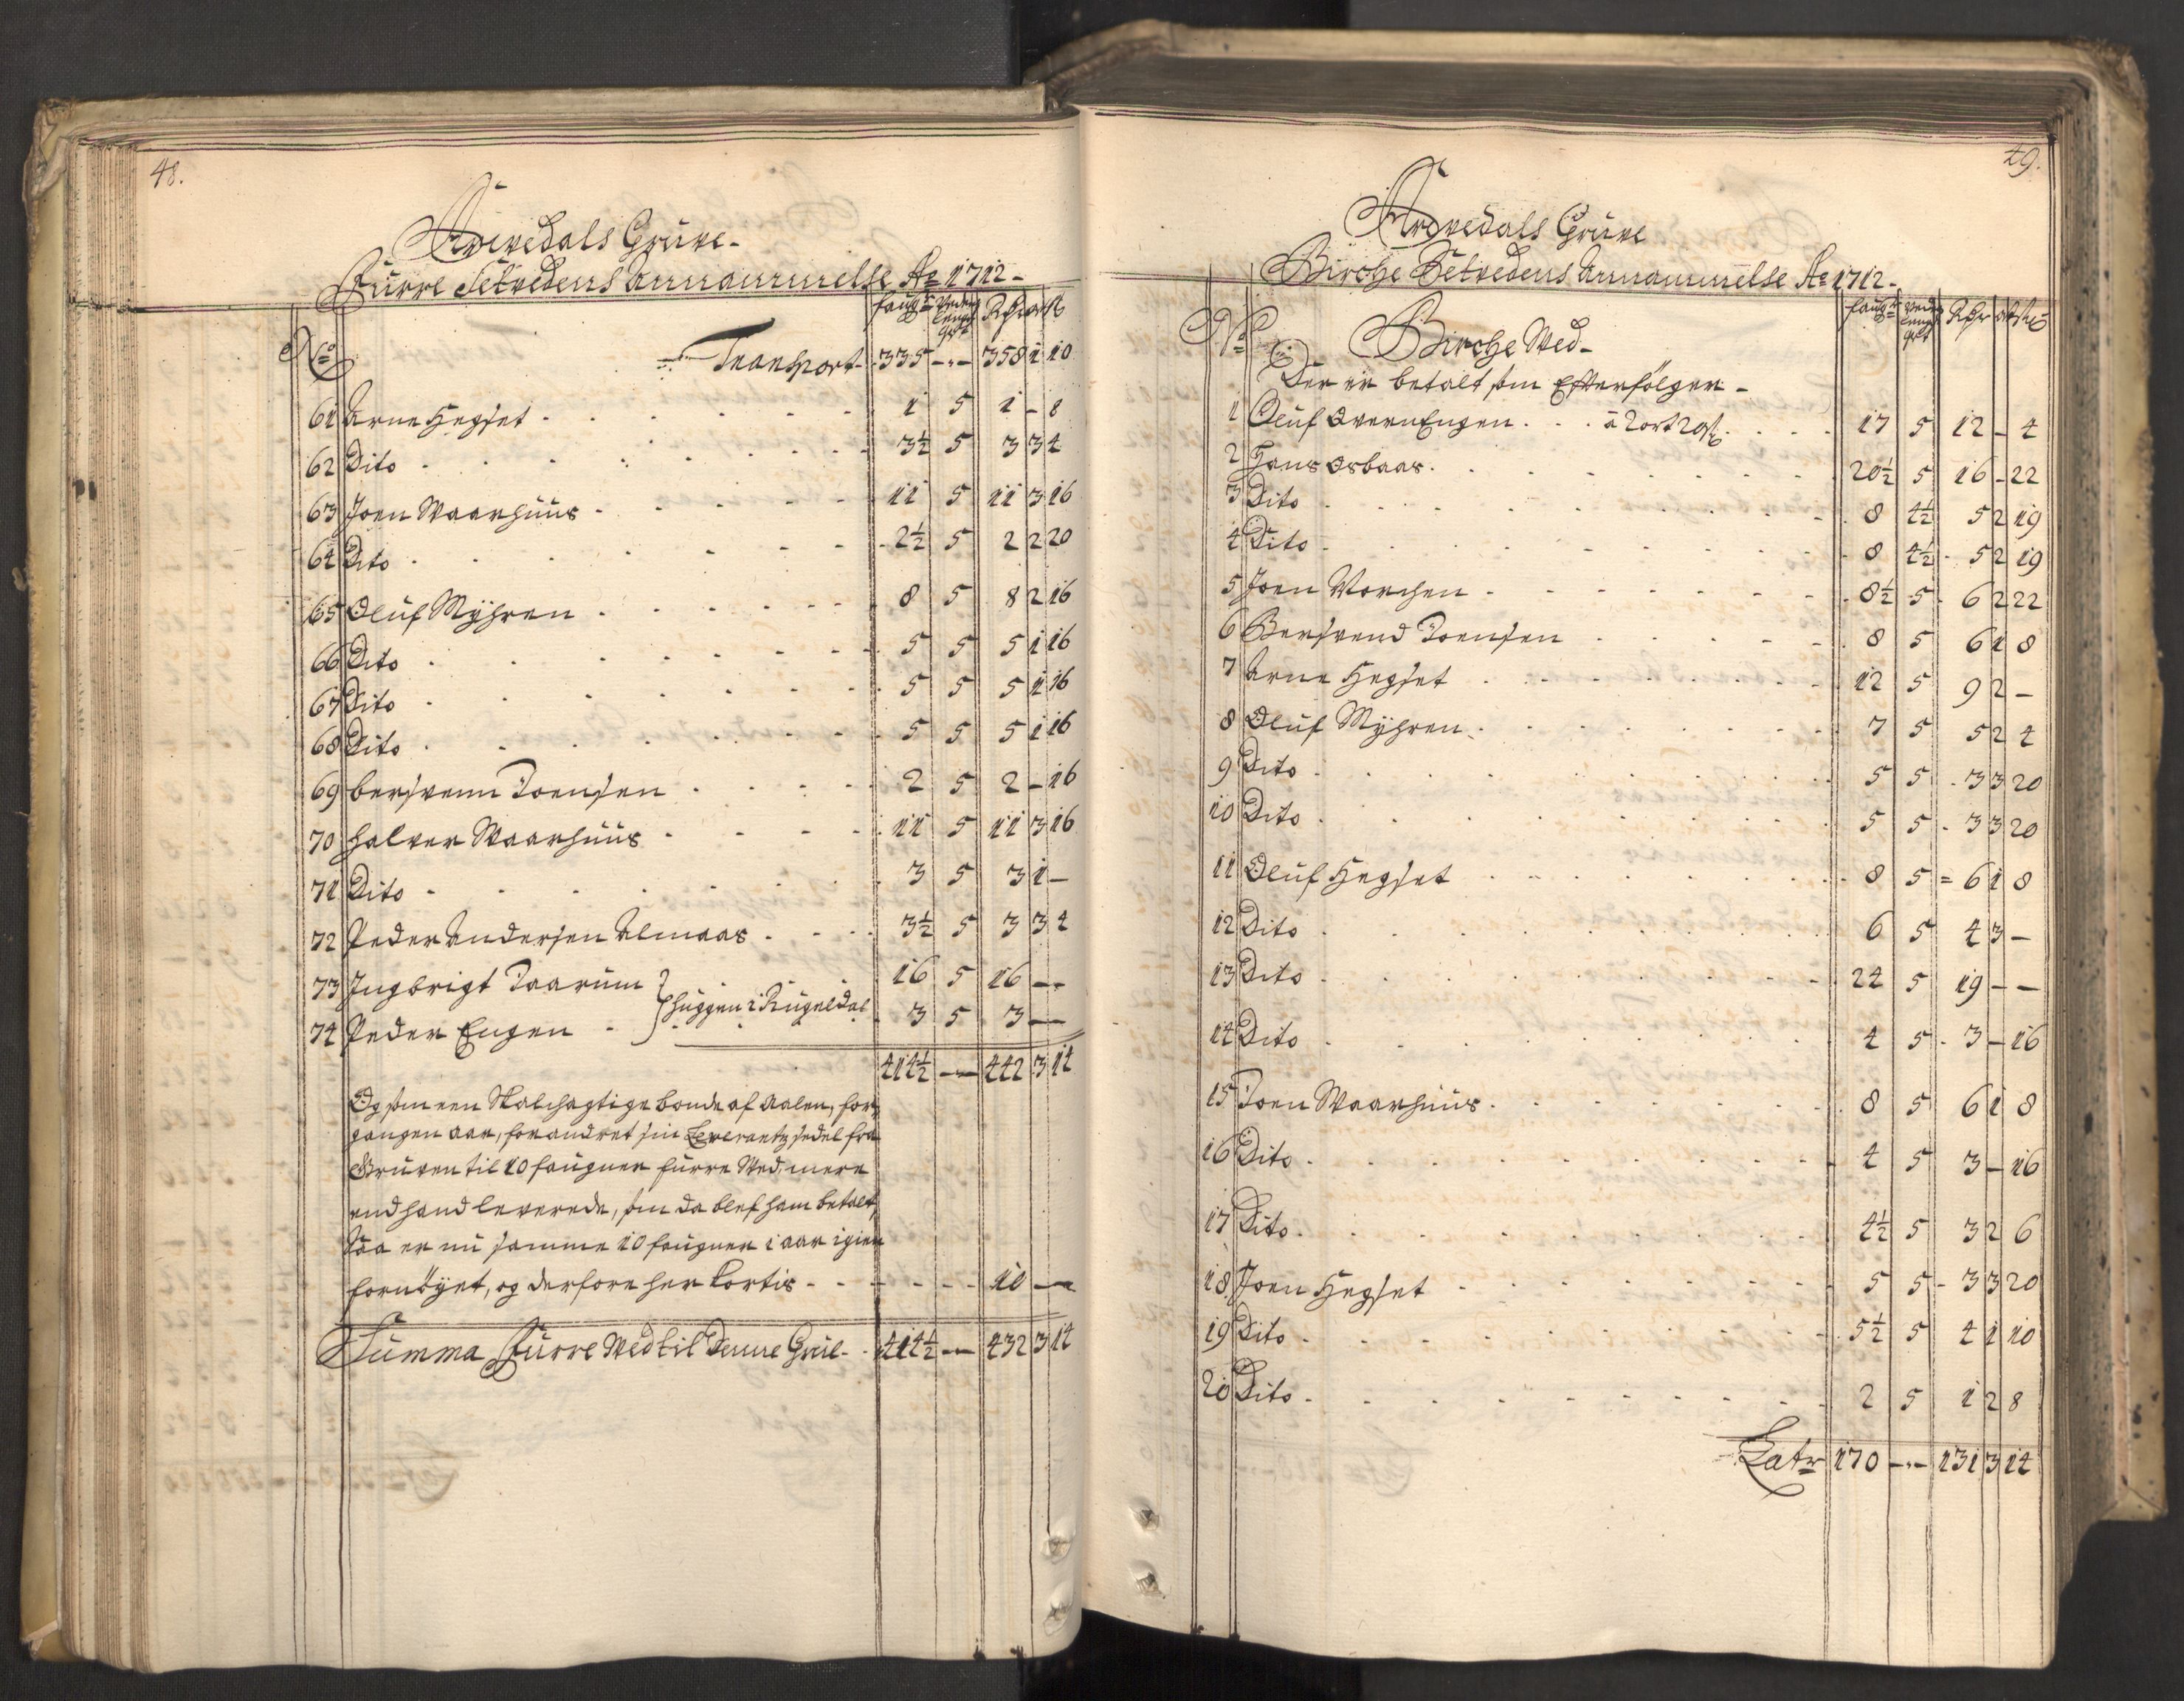 48.
Arvedals Gruve-
Furre Setvedens Annammelse Ao 1712-
No faugr Veden lengt qrt Rdr ort ß
Transport- 335 - 358 1 10
61 Arne Hegset 1 5 1 - 8
62 Dito 3½ 5 3 3 4
63 Joen Waarhuus 11 5 11 3 16
64 Dito 2½ 5 2 2 20
65 Oluf Myhren 8 5 8 2 16
66 Dito 5 5 5 1 16
67 Dito 5 5 5 1 16
68 Dito 5 5 5 1 16
69 bersvenn Joensen 2 5 2 - 16
70 Halver Waarhuus 11 5 11 3 16
71 Dito 3 5 3 1 -
72 Peder Andersen Almaas 3½ 5 3 3 4
73 Ingbrigt Taarum 16 5 16 - -
huggen i Rugeldal
74 Peder Engen 3 5 3 - -
414½ - 442 3 14
Og som een Skalchagtige bonde af Aalen, for
gangen aar, forandret sin Leverantz sedel fra
Gruven til 10 faugner furre Wed mere
end hand leverede, som da blef ham betalt,
Saa er nu samme 10 faugner i aar igien
fornøyet, og derfore her Kortis - - - - - 10 -
Summa Furre Wed til Denne Grue- 414½ - 432 3 14
49.
Arvedals Gruve
Birche Setvedens Annammelse Ao 1712-
No faugr Veden lengt qrt Rdr ort ß
Birche Wed-
Der er betalt som Efterfølger-
1 Oluf OvernEngen à 2 ort 20 ß 17 5 12 - 4
2 Hans Osbaas 20½ 5 16 - 22
3 Dito 8 4½ 5 2 19
4 Dito 8 4½ 5 2 19
5 Joen Morchen 8½ 5 6 2 22
6 Bersvend Joensen 8 5 6 1 8
7 Arne Hegset 12 5 9 2 -
8 Oluf Myhren 7 5 5 2 4
9 Dito 5 5 3 3 20
10 Dito 5 5 3 3 20
11 Oluf Hegset 8 5 6 1 8
12 Dito 6 5 4 3 -
13 Dito 24 5 19 - -
14 Dito 4 5 3 - 16
15 Joen Waarhuus 8 5 6 1 8
16 Dito 4 5 3 - 16
17 Dito 4½ 5 3 2 6
18 Joen Hegset 5 5 3 3 20
19 Dito 5½ 5 4 1 10
20 Dito 2 5 1 2 8
Latr 170 - 131 3 14